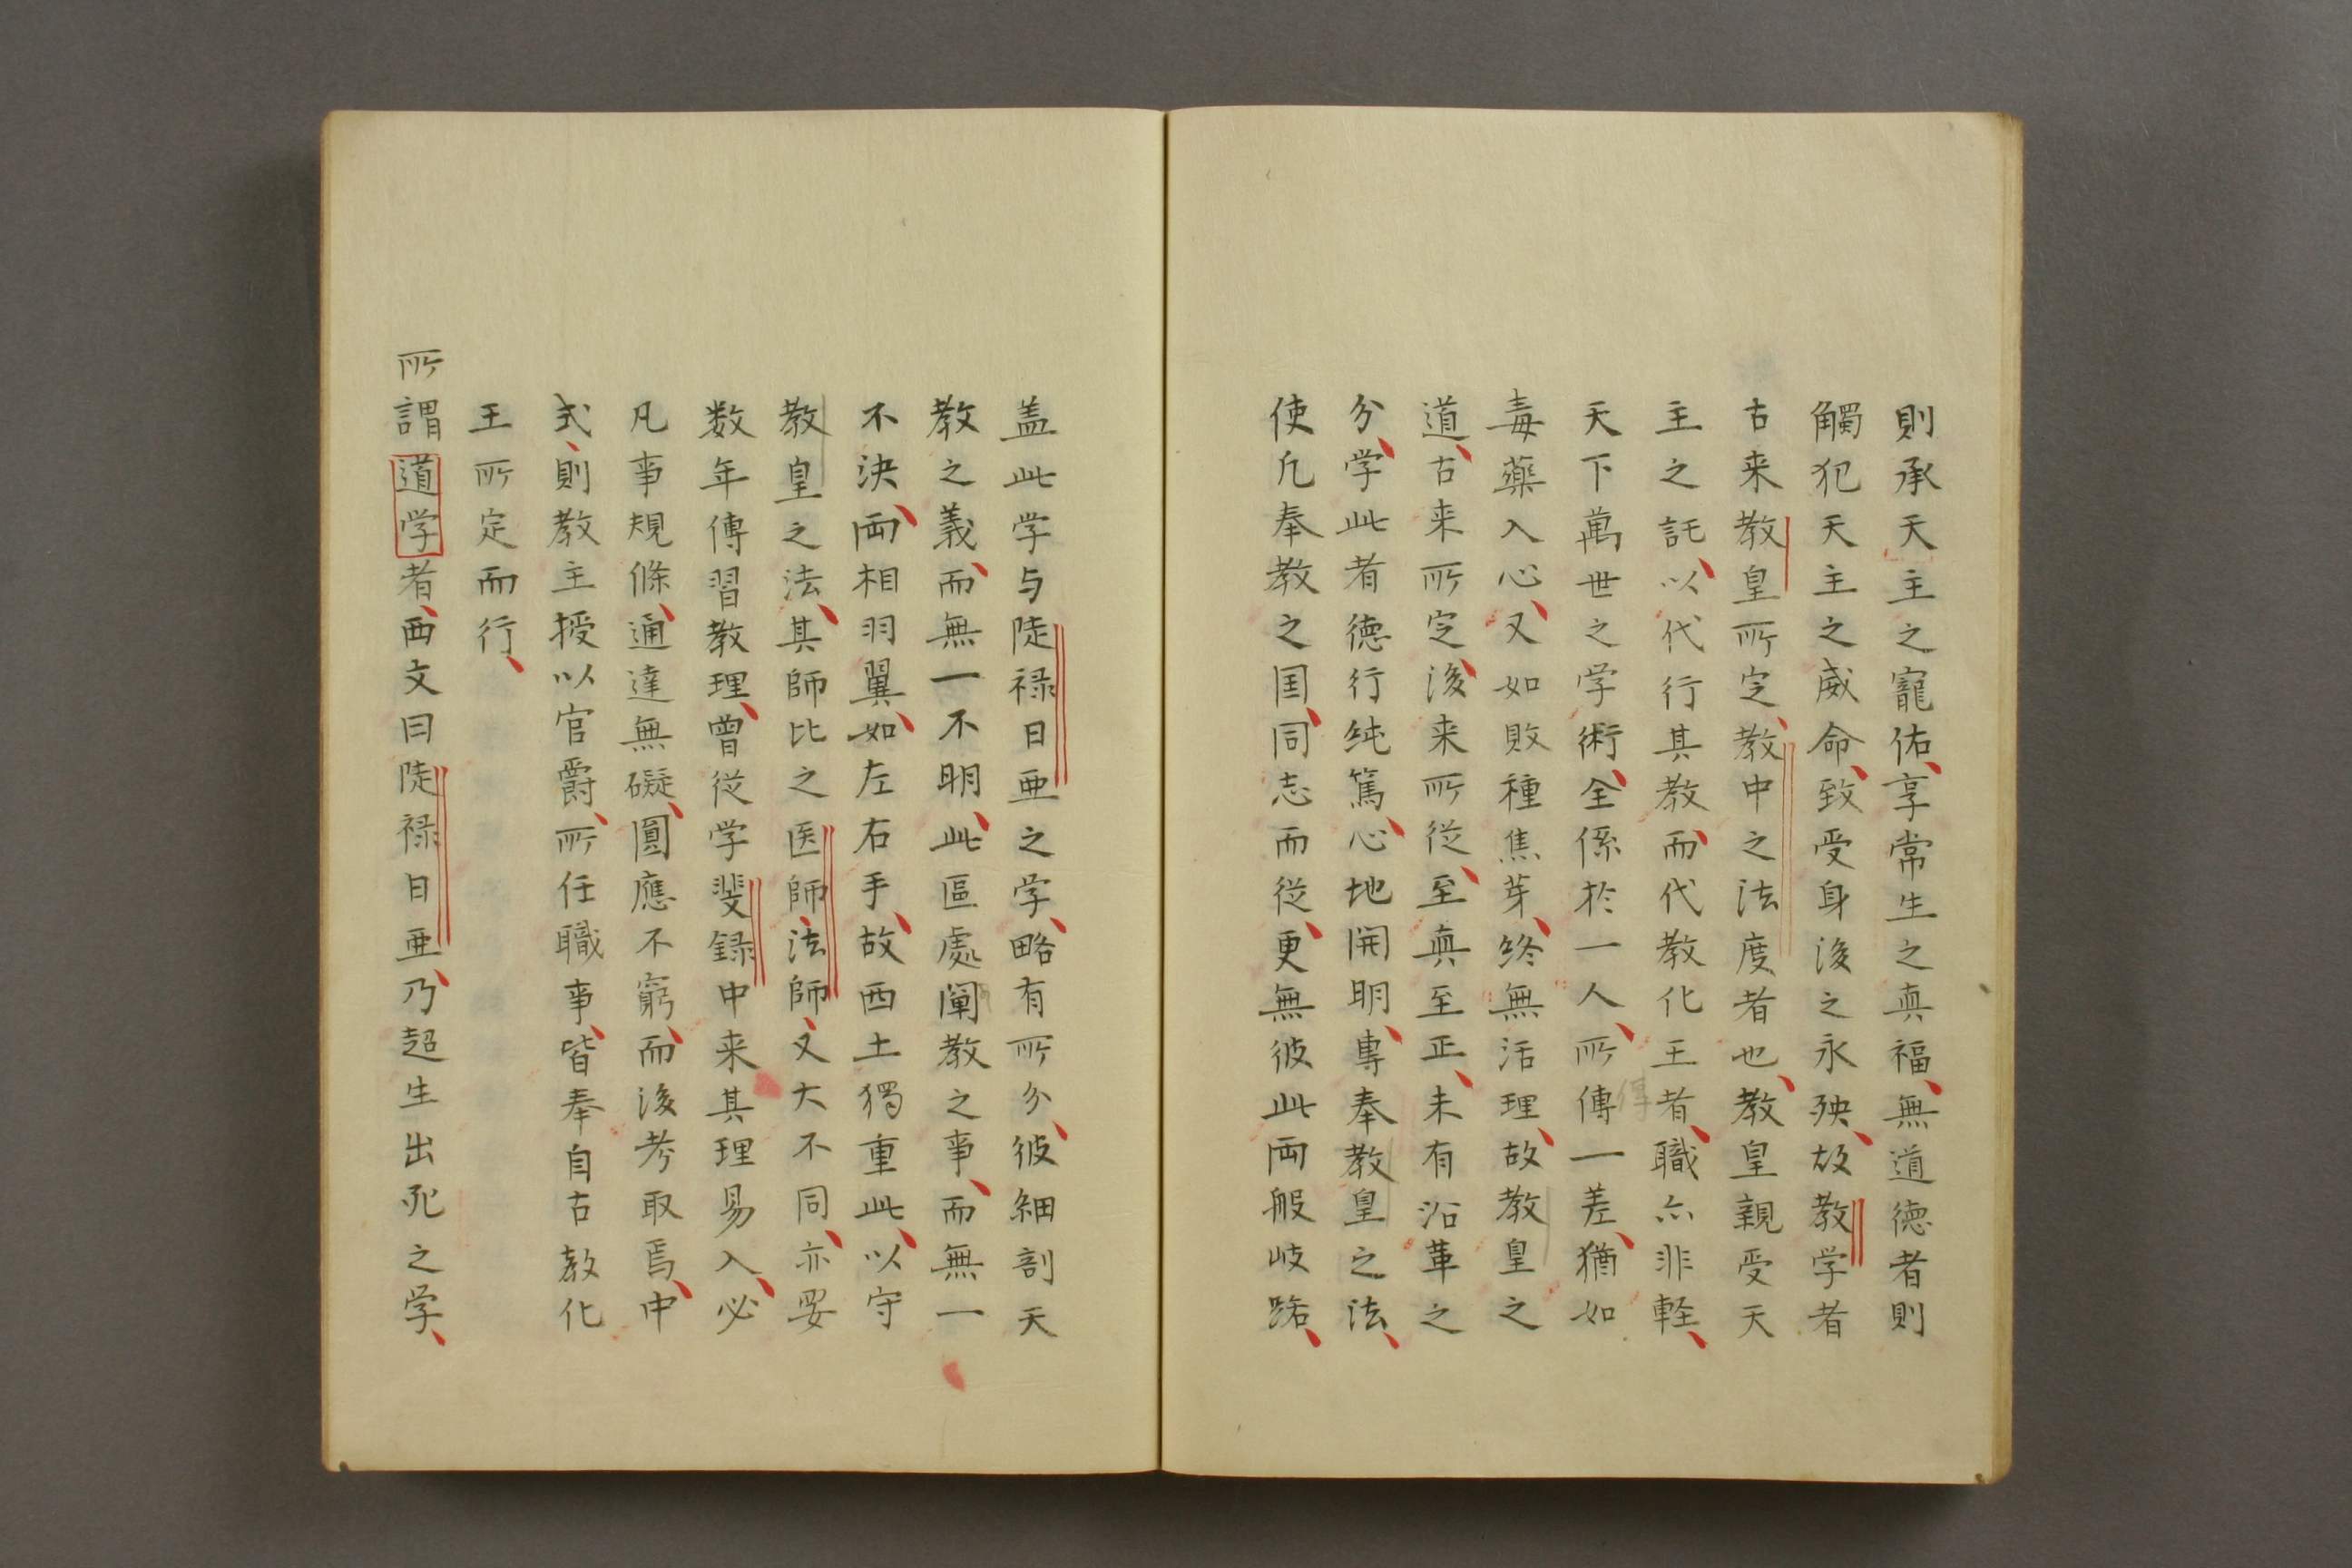 則承天主之寵佑、享常生之真福、無道徳者則
觸犯天主之威命、致受身後之永殃、故教学者
古来教皇所定、教中之法度者也、教皇親受天
主之託、以代行其教、而代教化王者、職亦非軽、
天下萬世之学術、全係於一人、所傳一差、猶如
毒藥入心、又如敗種焦芽、終無活理、故教皇之
道、古来所定、後来所従、至真至正、未有沿革之
分、学此者徳行純篤、心地開明、專奉教皇之法、
使凡奉教之国、同志而従、更無彼此両般岐路、
盖此学与陡禄日亜之学、略有所分、彼細剖天
教之義、而無一不明、此區處闡教之事、而無一
不決、両相羽翼、如左右手、故西土獨重此、以守
教皇之法、其師比之医師、法師、又大不同、亦要
数年傳習教理、曽従学斐録中来、其理易入、必
凡事規條、通達無礙、圓應不窮、而後考取焉、中
式、則教主授以官爵、所任職事、皆奉自古教化
王所定而行、
所謂道学者、西文曰陡禄日亜、乃超生出死之学、